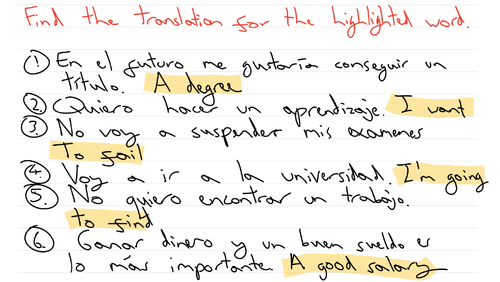 Find the translation for the highlighted word.
① En el futuro me gustaría conseguir un
título. A degree
2. Quiero hacer un aprendizaje. I want
③ No voy a suspender mis examenes
To fail
④. Voy a ir a la universidad. I'm going
⑤. No quiero encontrar un trabajo.
to find
⑥. Ganar dinero y un buen sueldo es
lo más importante. A good salary